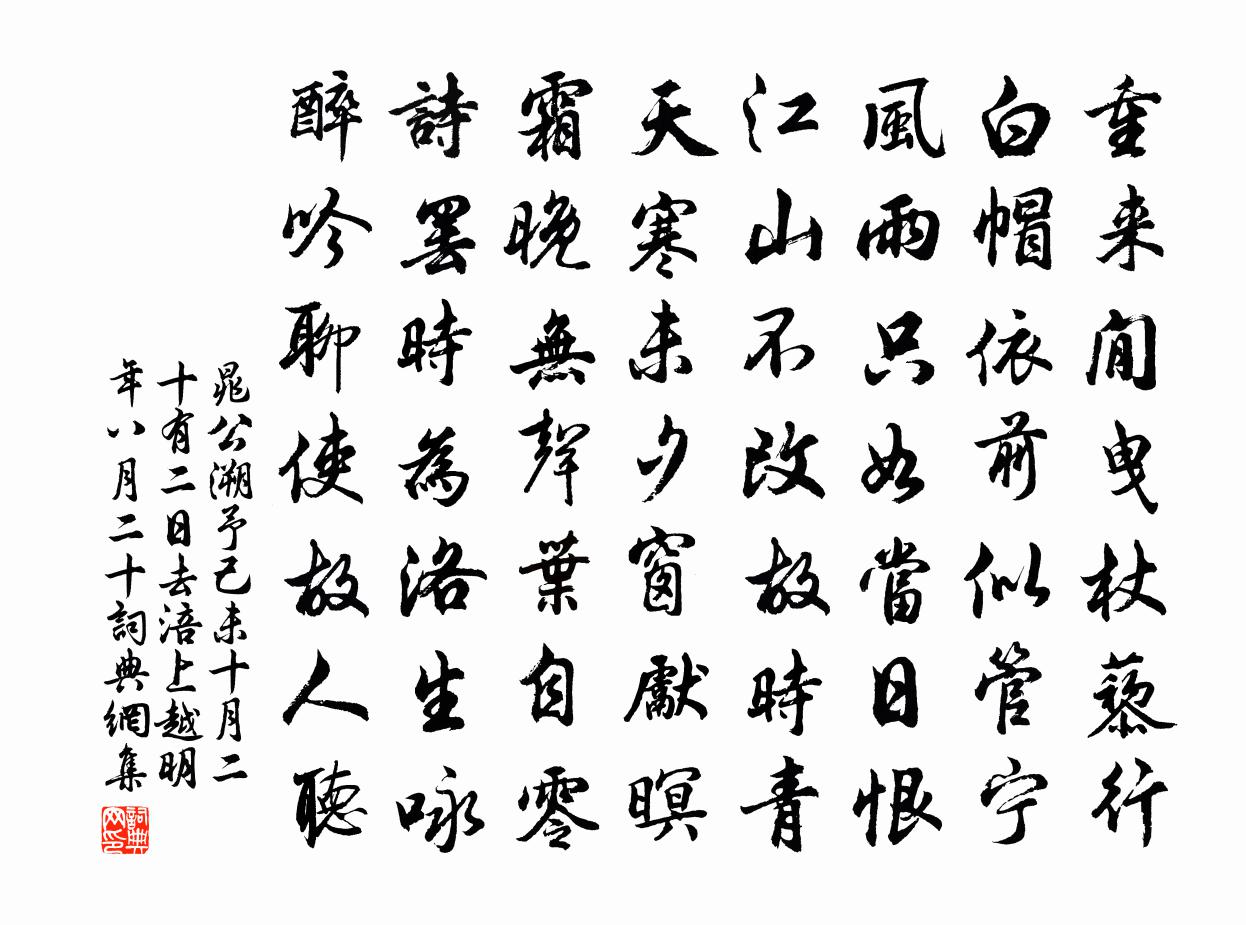 重来閒曳杖藜行
白帽依前似管宁
風雨只如當日恨
江山不改故時青
天寒未夕窗獻暝
霜晚無聲葉自零
詩罢時為洛生咏
醉吟聊使故人聽
晁公溯予己未十月二
十有二日去涪上越明
年八月二十詞典網集
詞典
网印